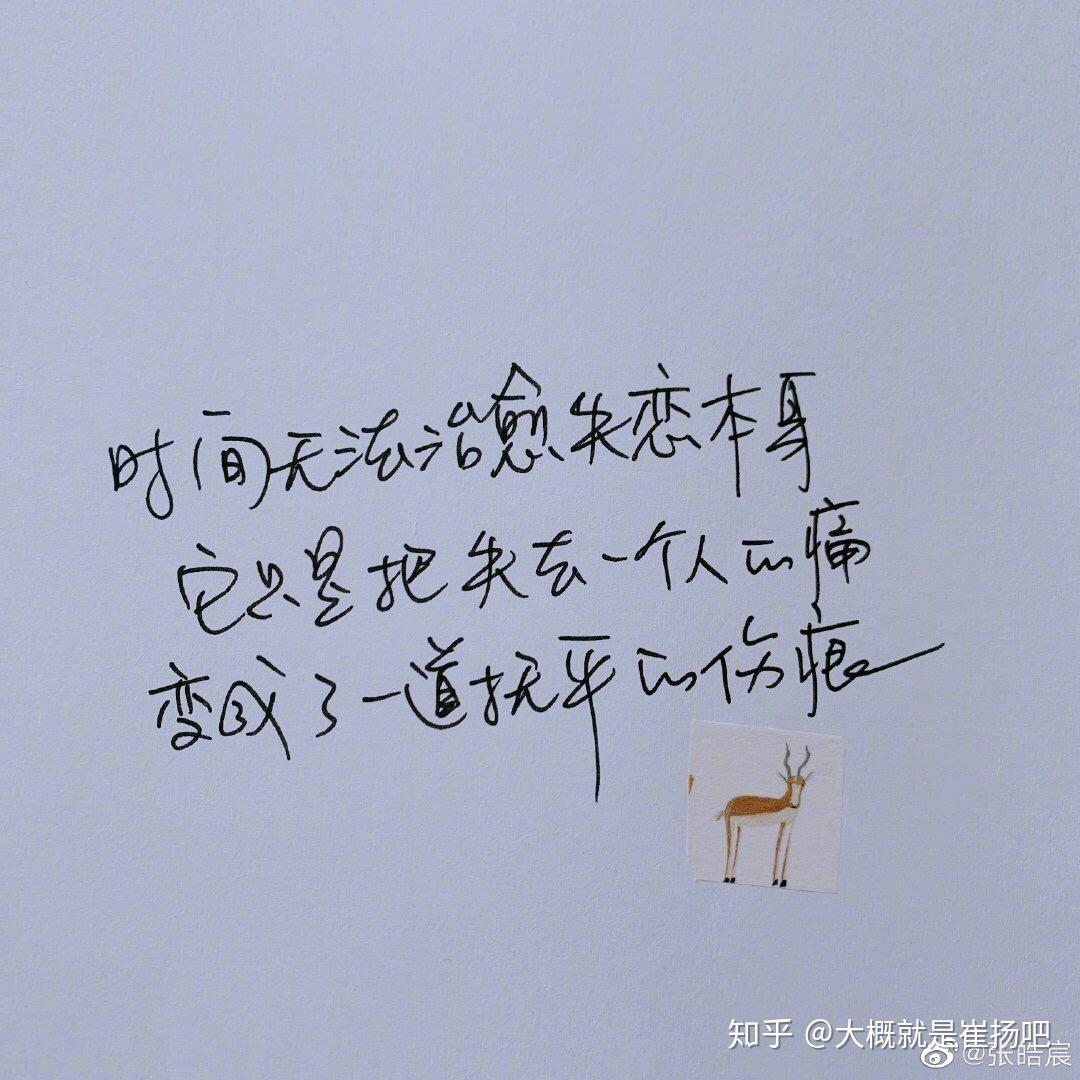 时间无法治愈失恋本身
它只是把失去一个人的痛
变成了一道抚平的伤痕
知乎 @大概就是崔扬吧
@张皓宸